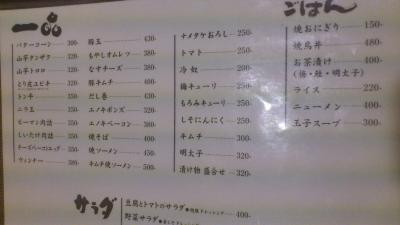 一品
バターコーン 300-
山芋タンザク 320-
山芋トロロ 320-
とり皮ユビキ 330-
トンチ 350-
ニラ玉 350-
ピーマン肉詰 350-
しいたけ肉詰 350-
チーズベーコンエッグ 350-
ウィンナー 380-
豚玉 430-
もやしオムレツ 380-
なすチーズ 380-
豚キムチ 380-
だし巻 430-
エノキポンズ 320-
エノキベーコン 380-
焼そば 400-
焼ソーメン 450-
キムチ焼ソーメン 500-
ナメタケおろし 250-
トマト 250-
冷奴 200-
梅キューリ 250-
もろみキューリ 250-
しそにんにく 250-
キムチ 300-
明太子 320-
漬け物 盛合せ 320-
ごはん
焼おにぎり 150-
焼鳥丼 480-
お茶漬け 400-
(梅・鮭・明太子)
ライス 220-
ニューメン 400-
玉子スープ 300-
サラダ
豆腐とトマトのサラダ 400-
野菜サラダ